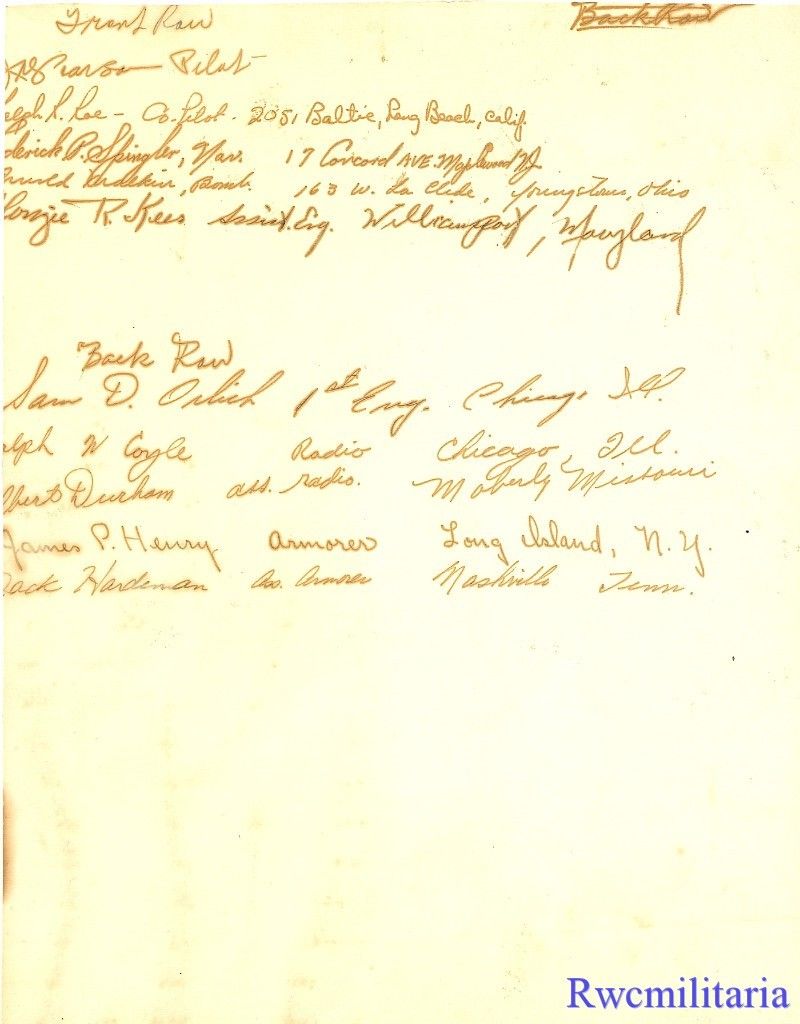 Front Row
Back Row
Pearson Pilot
Co. Pilot - 2051 Baltic, Long Beach, Calif.
derick P. Spingler, Nav. 17 Concord AVE. Maplewood NJ
Erdskin, Bomb. 163 W. La Clede, Youngstown, Ohio
R. Kees Assist. Eng. Williamsport, Maryland
Back Row
Sam D. Orlich 1st Eng. Chicago Ill.
alph W Coyle Radio Chicago, Ill.
lbert Durham ass. radio. Moberly Missouri
James P. Henry Armorer Long Island, N.Y.
Jack Hardeman As. Armorer Nashville Tenn.
Rwcmilitaria